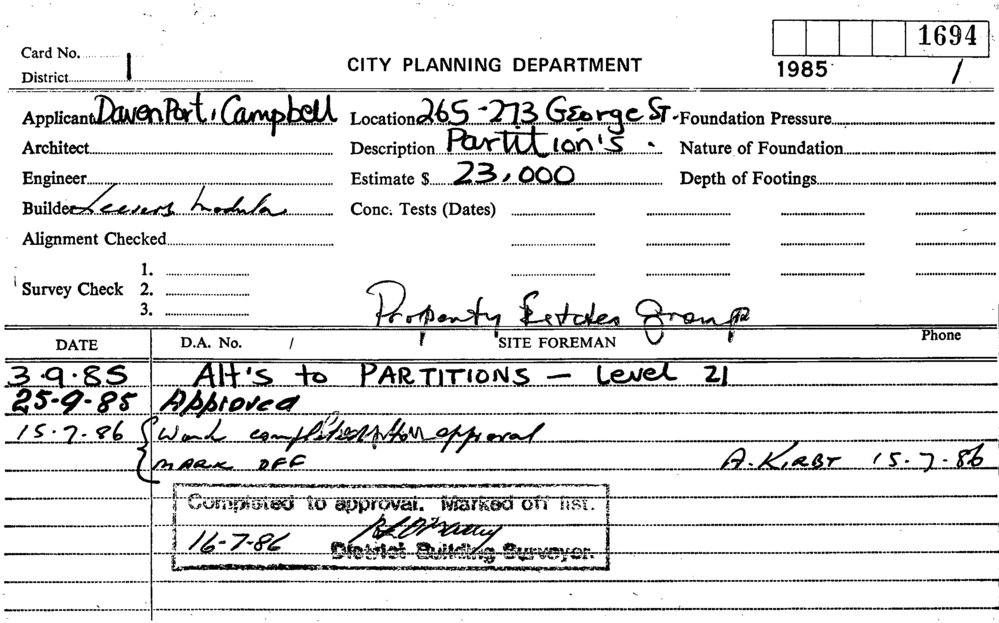 Card No.
1694
District 1
CITY PLANNING DEPARTMENT
1985 /
Applicant DavenPort, Campbell
Location 265-273 George St.
Foundation Pressure
Architect
Description Partition's.
Nature of Foundation
Engineer
Estimate $ 23,000
Depth of Footings
Builder
Conc. Tests (Dates)
Alignment Checked
Survey Check
1.
2.
3.
Property Group
DATE
D.A. No. /
SITE FOREMAN
Phone
3.9.85 Alt's to PARTITIONS — Level 21
25-9-85 Approved
15.7.86 Work approval
MARK OFF A. KIRBY 15.7.86
Completed to approval. Marked off list.
16-7-86 District Building Surveyor.